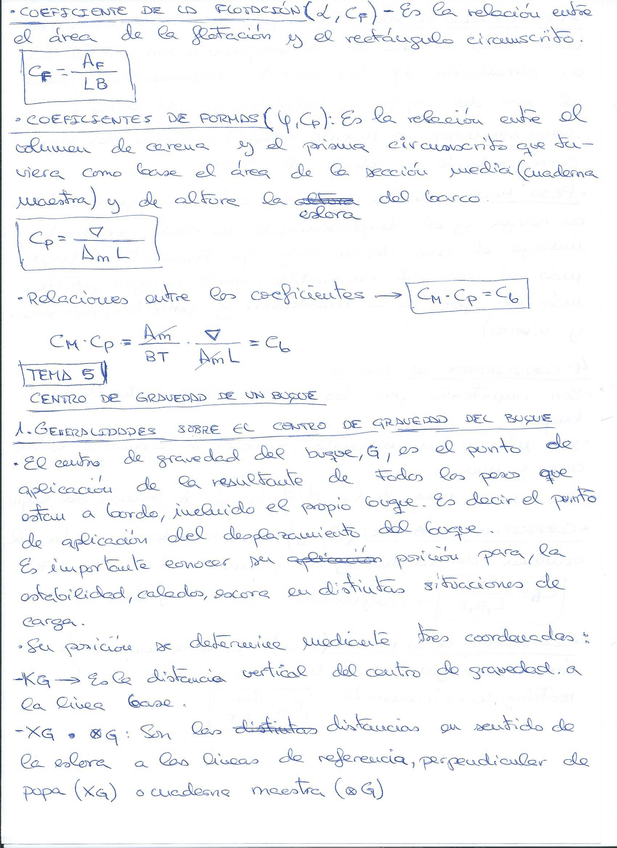 • COEFICIENTE DE LA FLOTACIÓN (α, CF) - Es la relación entre
el área de la flotación y el rectángulo circunscrito.
CF = AF / LB
• COEFICIENTES DE FORMAS (φ, Cp): Es la relación entre el
volumen de carena y el prisma circunscrito que tu-
viera como base el área de la sección media (cuaderna
maestra) y de altura la altura del barco.
eslora
Cp = ∇ / Am L
• Relaciones entre los coeficientes → CM · Cp = Cb
CM · Cp = Am / BT · ∇ / Am L = Cb
TEMA 5
CENTRO DE GRAVEDAD DE UN BUQUE
1. GENERALIDADES SOBRE EL CENTRO DE GRAVEDAD DEL BUQUE
• El centro de gravedad del buque, G, es el punto de
aplicación de la resultante de todos los pesos que
estan a bordo, incluido el propio buque. Es decir el punto
de aplicación del desplazamiento del buque.
Es importante conocer su aplicación posición para, la
estabilidad, calados, escora en distintas situaciones de
carga.
• Su posición se determina mediante tres coordenadas:
-KG → Es la distancia vertical del centro de gravedad. a
la linea base.
-XG • ⊗G: Son las distintas distancias en sentido de
la eslora a las lineas de referencia, perpendicular de
popa (XG) o cuaderna maestra (⊗G)